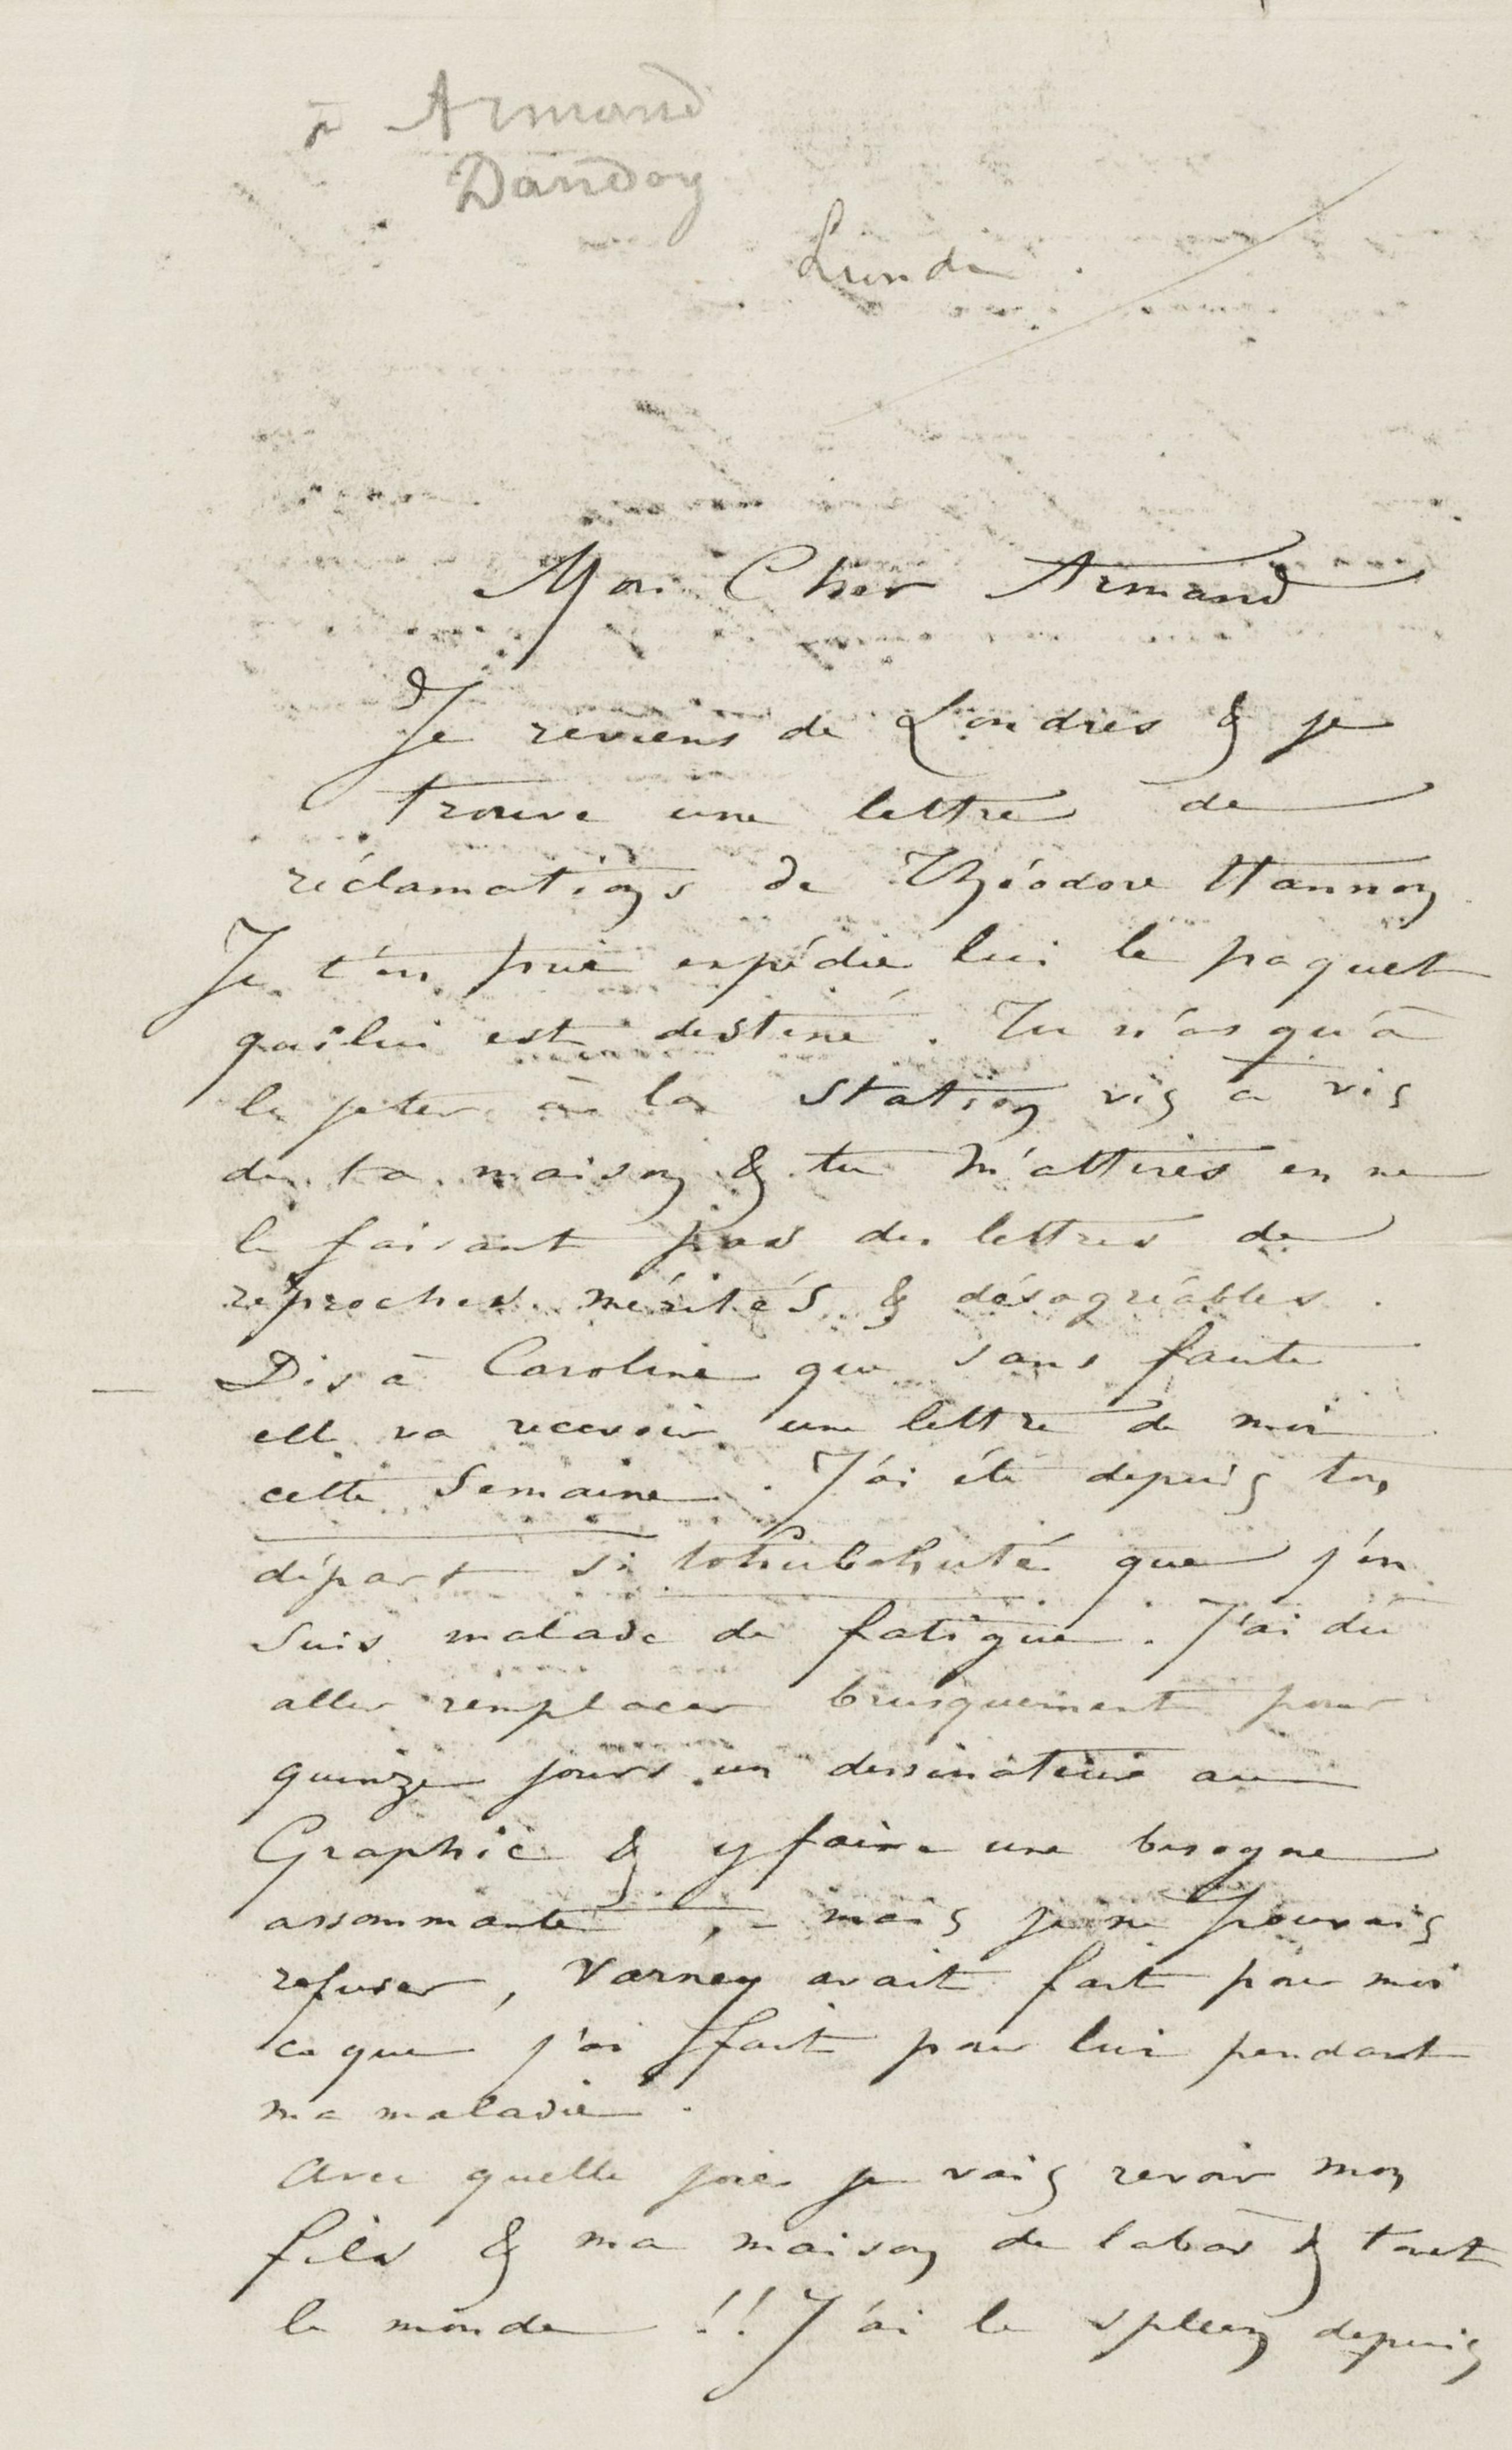 à Armand
Dandoy
Lundi.
Mon Cher Armand
Je reviens de Londres & je
trouve une lettre de
réclamations de Théodore Hannon
Je t'en prie expédie lui le paquet
qui lui est destiné. Tu n'as qu'à
le jeter à la station vis à vis
de ta maison & tu m'attires en ne
le faisant pas des lettres de
reproches mérités & désagréables.
— Dis à Caroline que sans faute
elle va recevoir une lettre de moi
cette semaine. J'ai été depuis ton
départ si tohubohuté que j'en
suis malade de fatigue. J'ai dû
aller remplacer brusquement pour
quinze jours un dessinateur au
Graphic & y faire une besogne
assommante, – mais je ne pouvais
refuser, Varney avait fait pour moi
ce que j'ai fait pour lui pendant
ma maladie.
Avec quelle joie je vais revoir mon
fils & ma maison de labas & tout
le monde !! J'ai le spleen depuis